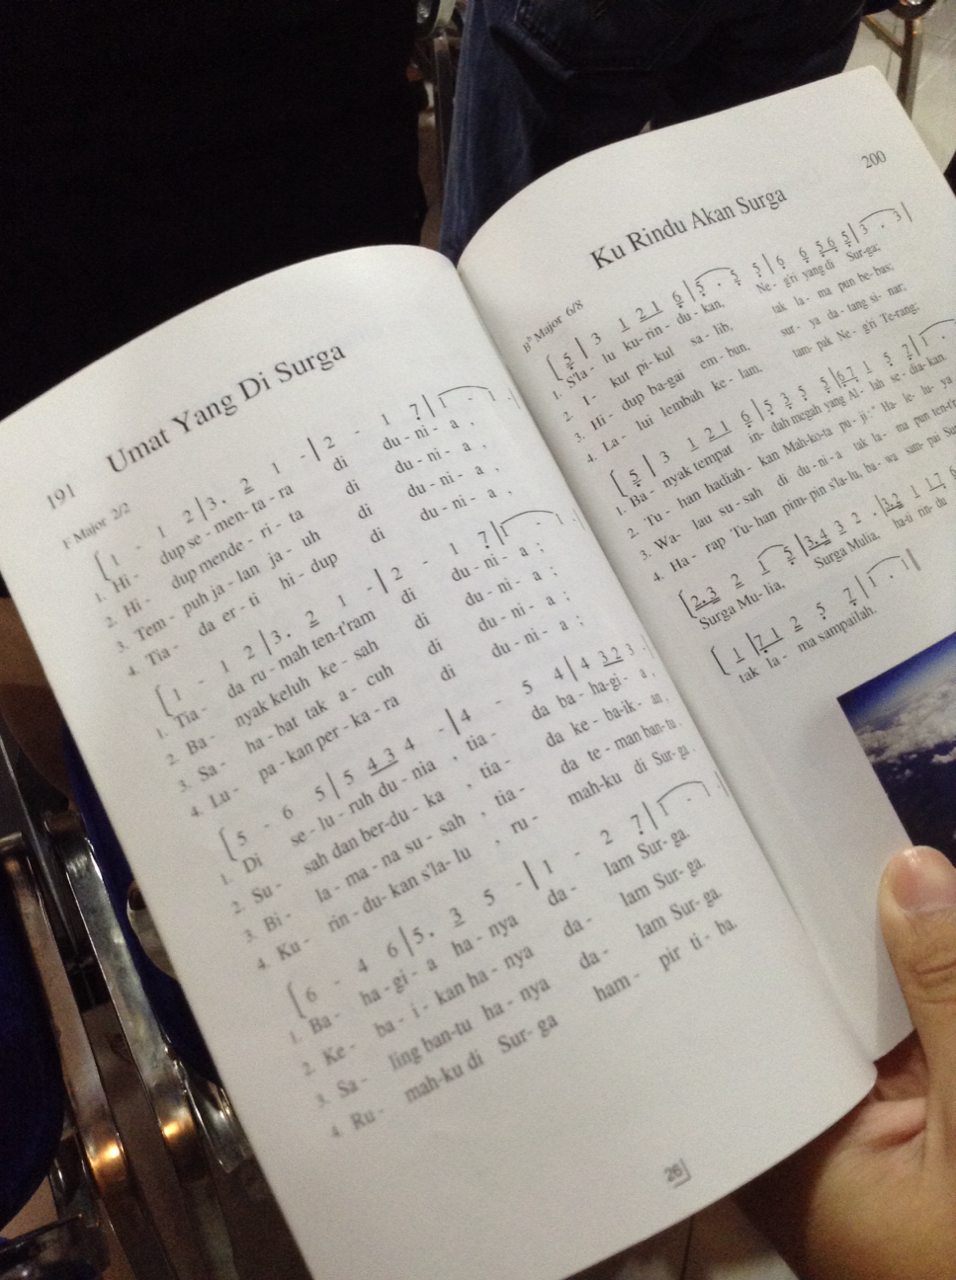 191
Umat Yang Di Surga
F Major 2/2
[1 - 1 2 | 3 . 2 1 - | 2 - 1 7 | 1 - 1 .
1. Hi - dup se - men - ta - ra di du - ni - a ,
2. Hi - dup mende - ri - ta di du - ni - a .
3. Tem - puh ja - lan ja - uh di du - ni - a .
4. Tia - da er - ti hi - dup di du - ni - a .
[1 - 1 2 | 3 . 2 1 - | 2 - 1 7 | 1 - 1 .
1. Tia - da ru - mah ten-t'ram di du - ni - a ;
2. Ba - nyak keluh ke - sah di du - ni - a ;
3. Sa - ha - bat tak a - cuh di du - ni - a ;
4. Lu - pa - kan per - ka - ra di du - ni - a ;
[5 - 6 5 | 5 4 3 4 - | 4 - 5 4 | 4 3 2 3
1. Di se - lu - ruh du - nia , tia - da ba - ha-gi - a ,
2. Su - sah dan ber-du - ka , tia - da ke - ba-ik - an ,
3. Bi - la - ma - na su - sah , tia - da te - man ban-tu
4. Ku - rin - du- kan s'la- lu , ru - mah-ku di Sur- ga .
[6 - 4 6 | 5 . 3 5 - | 1 - 2 7 | 1 - 1
1. Ba - ha - gi - a ha - nya da - lam Sur- ga.
2. Ke - ba - i - kan ha - nya da - lam Sur- ga.
3. Sa - ling ban-tu ha - nya da - lam Sur- ga.
4. Ru - mah-ku di Sur- ga ham - pir ti - ba.
26
200
Ku Rindu Akan Surga
B♭ Major 6/8
[5 | 3 1 2 1 6 | 5 . 5 5 | 6 6 5 6 5 | 3 . 3 |
1. S'la- lu ku-rin - du - kan, Ne - g'ri yang di Sur-ga;
2. I- kut pi-kul sa - lib, tak la - ma pun be-bas;
3. Hi - dup ba-gai em - bun, sur- ya da - tang si - nar;
4. La - lui lembah ke - lam, tam- pak Ne - g'ri Te-rang;
[5 | 3 1 2 1 6 | 5 3 5 5 | 6 7 1 5 7 | 1 .
1. Ba - nyak tempat in- dah megah yang Al - lah se - dia- kan.
2. Tu - han hadiah - kan Mah-ko-ta pu - ji." Ha - le - lu - ya
3. Wa- lau su - sah di du - ni - a tak la - ma pun ten-t'r
4. Ha - rap Tu- han pim- pin s'la-lu, ba - wa sam - pai Su
[2 . 3 2 1 5 | 3 . 4 3 2 . | 3 . 2 1 1 7 6
Surga Mu - lia, Surga Mulia, ha-ti rin- du
[1 | 7 1 2 5 7 | 1 . 1 |
tak la - ma sampailah.